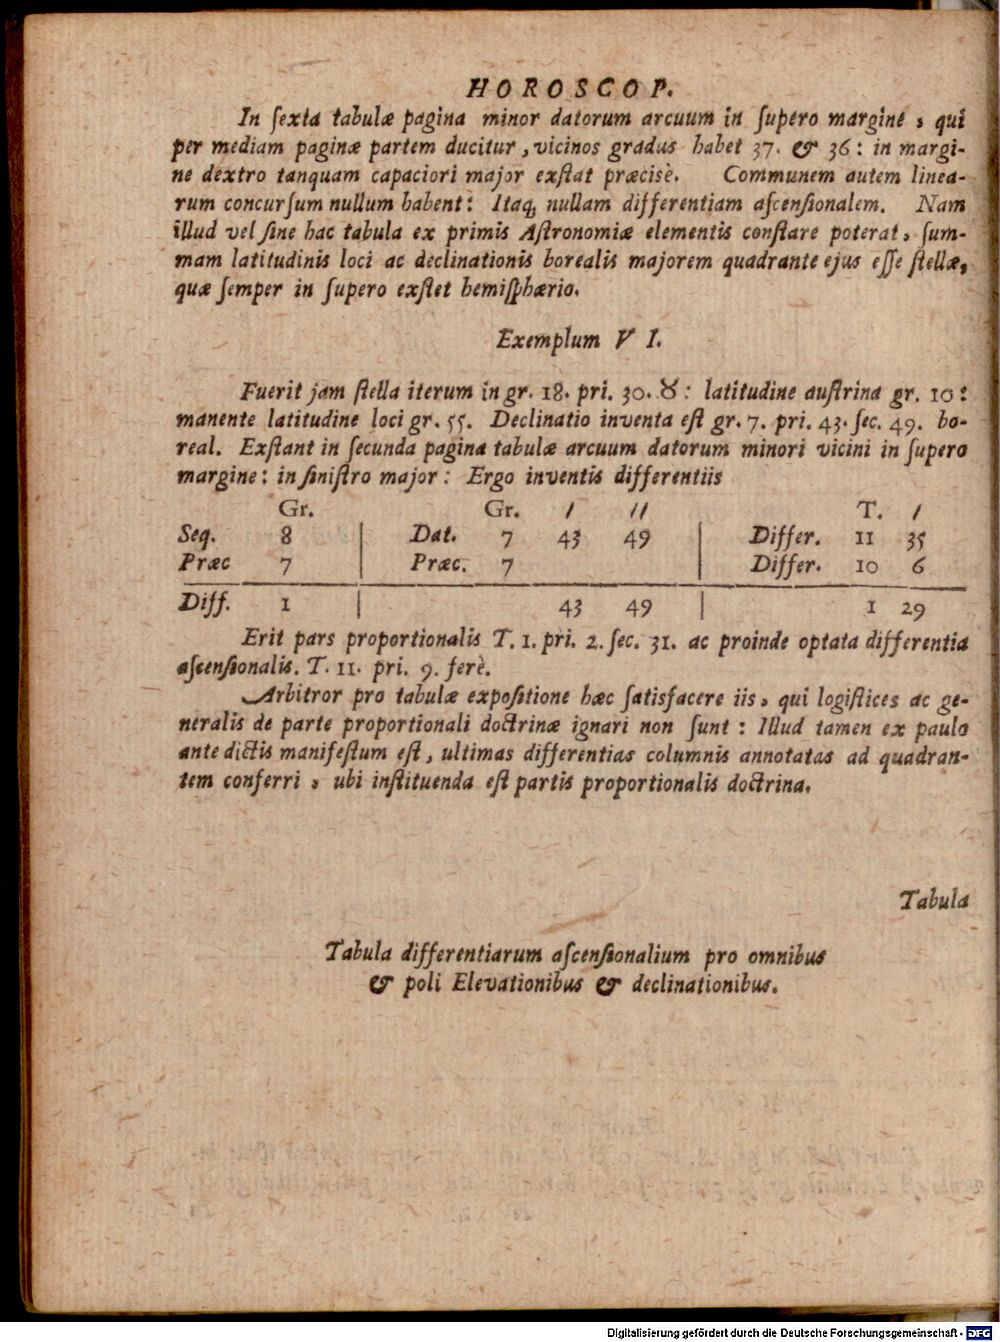 HOROSCOP.
In ſexta tabulæ pagina minor datorum arcuum in ſupero margine, qui
per mediam paginæ partem ducitur, vicinos gradus habet 37. & 36: in margi-
ne dextro tanquam capaciori major exſtat præcisè. Communem autem linea-
rum concurſum nullum habent: Itaq; nullam differentiam aſcenſionalem. Nam
illud vel ſine hac tabula ex primis Aſtronomiæ elementis conſtare poterat, ſum-
mam latitudinis loci ac declinationis borealis majorem quadrante ejus eſſe ſtellæ,
quæ ſemper in ſupero exſtet hemiſphærio.
Exemplum VI.
Fuerit jam ſtella iterum in gr. 18. pri. 30. ♉: latitudine auſtrina gr. 10:
manente latitudine loci gr. 55. Declinatio inventa eſt gr. 7. pri. 43. ſec. 49. bo-
real. Exſtant in ſecunda pagina tabulæ arcuum datorum minori vicini in ſupero
margine: in ſiniſtro major: Ergo inventis differentiis
Gr. Gr. / // T. /
Seq. 8 | Dat. 7 43 49 | Differ. 11 35
Præc 7 | Præc. 7 | Differ. 10 6
Diff. 1 | 43 49 | 1 29
Erit pars proportionalis T. 1. pri. 2. ſec. 31. ac proinde optata differentia
aſcenſionalis. T. 11. pri. 9. ferè.
Arbitror pro tabulæ expoſitione hæc ſatisfacere iis, qui logiſtices ac ge-
neralis de parte proportionali doctrinæ ignari non ſunt: Illud tamen ex paulo
ante dictis manifeſtum eſt, ultimas differentias columnis annotatas ad quadran-
tem conferri, ubi inſtituenda eſt partis proportionalis doctrina.
Tabula
Tabula differentiarum aſcenſionalium pro omnibus
& poli Elevationibus & declinationibus.
Digitalisierung gefördert durch die Deutsche Forschungsgemeinschaft - DFG